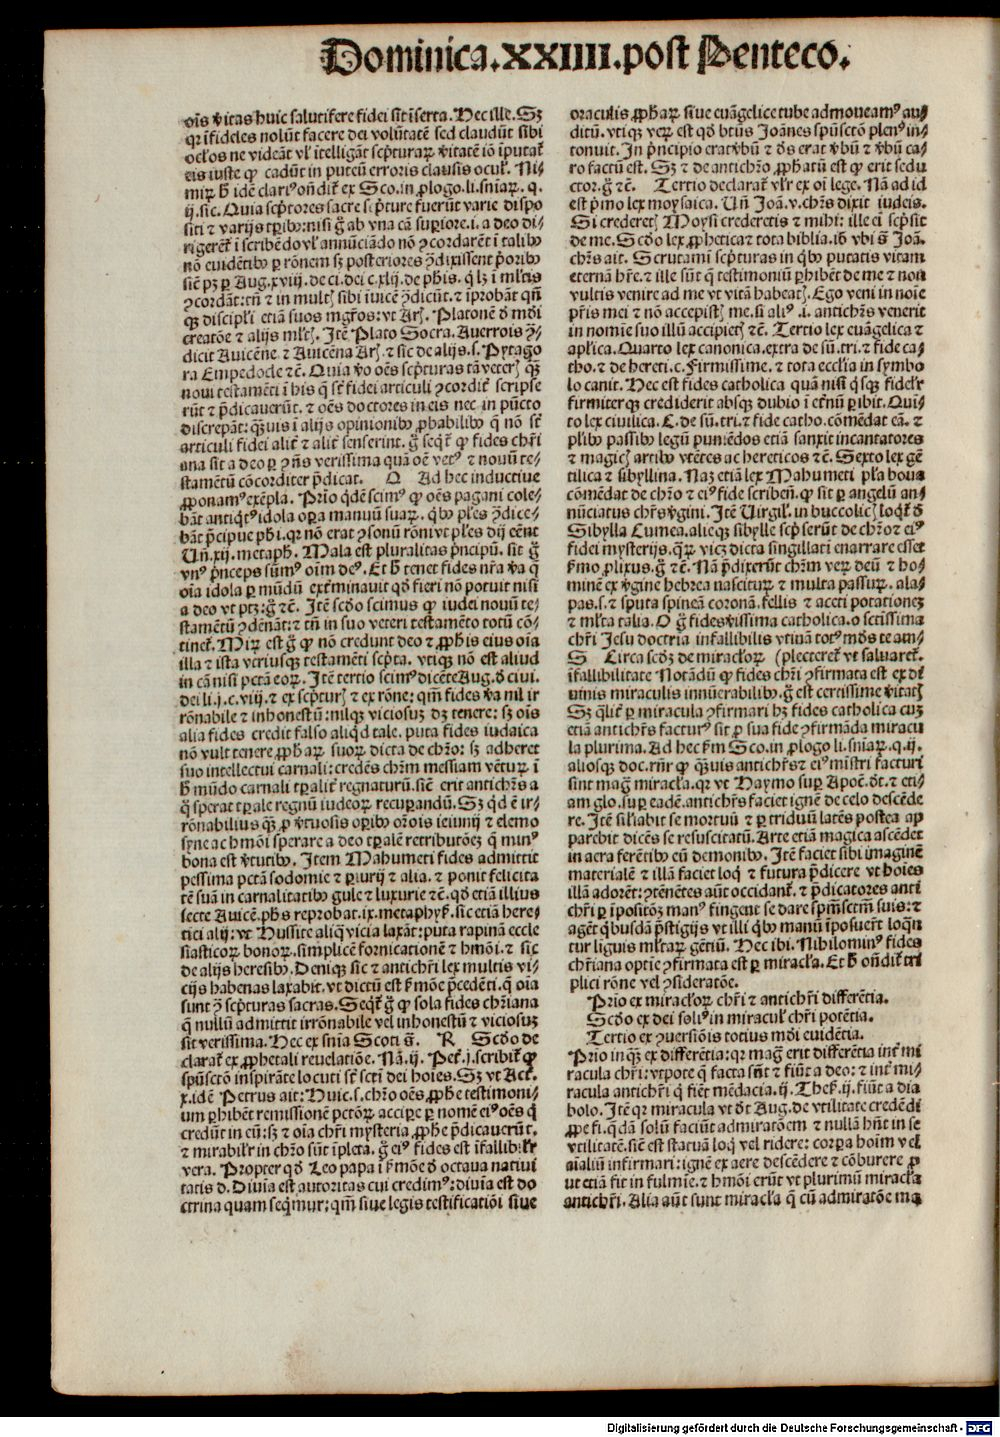 Dominica.XXIIII.post Penteco.
oīs v̄itas huic salutifere fidei sit īserta. Hec ille. Sꝫ
qꝛ īfideles nolūt facere dei volūtatē sed claudūt sibi
oc̄los ne videāt vl̓ ītelligāt sc̄pturaꝝ v̄itatē iō īputat̄
eis iuste ꝙ cadūt in puteū erroris clausis ocul̓. Ni-
miꝝ ħ idē clariꝰ oñdit̄ ex Sco. in ꝓlogo. li. sniaꝝ. q.
ij. sic. Quia sc̄ptores sacre sc̄pture fuerūt varie dispo
siti ⁊ varijs tꝑibꝰ: nisi g̊ ab vna cā supiore .i. a deo di-
rigerēt̄ ī scribēdo vl̓ annūciādo nō ꝯcordarēt ī talibꝰ
nō euidētibꝰ ꝑ rōnem sꝫ posteriores ꝯ̄dixissent p̄oribꝰ
sicut pꝫ ꝑ Aug. xviij. de ci. dei c. xlij. de ph̄is. q̄ lꝫ ī ml̓tis
ꝯcordāt: tn̄ ⁊ in mult̄ sibi īuicē ꝯ̄dicūt. ⁊ īprobāt qn̄
qꝫ discipl̓i etiā suos mḡros: vt Ar̄. Platonē d̓ mōi
creatōe ⁊ alijs ml̓t̄. Itē Plato Socra. Auerrois ꝯ̄-
dicit Auicēne. ⁊ Auicēna Ar̄ ⁊ sic de alijs. s. Pytago
ra Empedocle ⁊c̄. Quia v̄o oēs sc̄pturas tā veteř qꝫ
noui testamēti ī his q̄ st̄ fidei articuli ꝯcordit̄ scripse
rūt ⁊ p̄dicauerūt. ⁊ oēs doctores in eis nec in pūcto
discrepāt: qꝫuis ī alijs opinionibꝰ ꝓbabilibꝰ q̄ nō st̄
articuli fidei alit̄ ⁊ alit̄ senserint. g̊ seqt̄ ꝙ fides chr̄i
ana sit a deo ꝑ ꝯñs verissima quā oē vetꝰ ⁊ nouū te-
stamētū cōcorditer p̄dicat. Q Ad hec inductiue
ꝓponamꝰ exēpla. Prio qdē scimꝰ ꝙ oēs pagani cole-
bāt antiqꝰtꝰ idola oꝑa manuū suaꝝ. qbꝰ ph̄es ꝯ̄dice-
bāt p̄cipue ph̄i. qꝛ nō erat ꝯsonū rōni vt ples dij eēnt
Uñ. xij. metaph̄. Mala est pluralitas p̄ncipū. sit g̊
vnꝰ p̄nceps sūmꝰ oīm deꝰ. Et ħ tenet fides nr̄a v̄a q̄
oīa idola ꝑ mūdū ext̄minauit qd̓ fieri nō potuit nisi
a deo vt ptꝫ: g̊ ⁊c̄. Itē scd̓o scimus ꝙ iudei nouū te-
stamētū ꝯdēnāt: ⁊ tn̄ in suo veteri testamēto totū cō-
tinet̄. Miꝝ est g̊ ꝙ nō credunt deo ⁊ ꝓphis eius oīa
illa ⁊ ista vtriusqꝫ testamēti sc̄pta. vtiqꝫ nō est aliud
in cā nisi pctā eoꝝ. Itē tertio scimꝰ dicēte Aug. d̓ ciui.
dei li. j. c. viij. ⁊ ex sc̄ptur̄ ⁊ ex rōne: qm̄ fides v̄a nil ir
rōnabile ⁊ inhonestū: nilqꝫ viciosuꝫ dꝫ tenere: sꝫ oīs
alia fides credit falso aliqd tale. puta fides iudaica
nō vult tenere ꝓphaꝝ suoꝝ dicta de chr̄o: sꝫ adheret
suo intellectui carnali: credēs chr̄m messiam vētuꝝ ī
ħ mūdo carnali tꝑalit̄ regnaturū. sicut erit antichr̄s a
q̊ sperat tꝑale regnū iudeoꝝ recuꝑandū. Sꝫ qd ē ir-
rōnabilius qꝫ ꝓ v̄tuosis oꝑibꝰ orōis ieiunij ⁊ elemo
syne ac hmōi sperare a deo tꝑalē retributōeꝫ q̄ minꝰ
bona est v̄tutibꝰ. Item Mahumeti fides admittit
pessima pctā sodomie ⁊ ꝑiurij ⁊ alia. ⁊ ponit felicita
tē suā in carnalitatibꝰ gule ⁊ luxurie ⁊c̄. qd̓ etiā illius
secte Auicē. ph̄s reprobat. ix. metaphyẜ. sic etiā here-
tici alij: vt Hussite aliq̄ vicia laxāt: puta rapinā eccle
siasticoꝝ bonoꝝ. simplicē fornicationē ⁊ hmōi. ⁊ sic
de alijs heresibꝰ. Deniqꝫ sic ⁊ antichr̄i lex multis vi-
cijs habenas laxabit. vt dictū est ẜmōe p̄cedēti. q̄ oīa
sunt ꝯ̄ sc̄pturas sacras. Seqt̄ g̊ ꝙ sola fides chr̄iana
q̄ nullū admittit irrōnabile vel inhonestū ⁊ viciosuꝫ
sit verissima. Hec ex snīa Scoti s̄. R Scd̓o de
clarat̄ ex ꝓphetali reuelatiōe. Nā. ij. Pet̄. j. scribit̄ ꝙ
spūsctō inspirāte locuti st̄ scti dei hoīes. Sꝫ vt Act̄.
x. idē Petrus ait: Huic. s. chr̄o oēs ꝓphe testimoni-
um ꝑhibēt remissionē pctōꝝ accipe ꝑ nomē eiꝰ oēs q̄
credūt in eū: sꝫ ⁊ oīa chr̄i mysteria ꝓphe p̄dicauerūt.
⁊ mirabilr̄ in chr̄o sūt īpleta. g̊ eiꝰ fides est īfallibilr̄
vera. Propter qd̓ Leo papa ī ẜmōe d̓ octaua natiui
tatis d. Diuīa est autoritas cui credimꝰ: diuīa est do
ctrina quam seqmur; qm̄ siue legis testificatiōi siue
oraculis ꝓphaꝝ siue euāgelice tube admoueamꝰ au-
ditū. vtiqꝫ veꝝ est qd̓ btūs Joānes spūsctō plenꝰ in-
tonuit. In p̄ncipio erat v̄bū ⁊ d̓s erat v̄bū ⁊ v̄bū ca-
ro factū est. Sꝫ ⁊ de antichr̄o ꝓphatū est ꝙ erit sedu
ctor. g̊ ⁊c̄. Tertio declarat̄ vl̓r ex oī lege. Nā ad id
est p̄mo lex moysaica. Uñ Joā. v. chr̄s dixit iudeis.
Si crederet̄ Moysi crederetis ⁊ mihi: ille eī sc̄psit
de me. Scd̓o lex ꝓphetica ⁊ tota biblia. ib̄ vbi s̄ Joā.
chr̄s ait. Scrutamī sc̄pturas in qbꝰ putatis vitam
eternā hr̄e. ⁊ ille sūt q̄ testimoniū ꝑhibēt de me ⁊ non
vultis venire ad me vt vitā habeat̄. Ego veni in noīe
pr̄is mei ⁊ nō accepist̄ me. si aliꝰ .i. antichr̄s venerit
in nomīe suo illū accipiet̄ ⁊c̄. Tertio lex euāgelica ⁊
apl̓ica. Quarto lex canonica. extra de sū. tri. ⁊ fide ca-
tho. ⁊ de hereti. c. Firmissime. ⁊ tota eccl̓ia in symbo
lo canit. Hec est fides catholica quā nisi q̄sqꝫ fidel̓r
firmiterqꝫ crediderit absqꝫ dubio ī et̄nū ꝑibit. Qui-
to lex ciuilica. C. de sū. tri. ⁊ fide catho. cōmēdat eā. ⁊
pl̓ibꝰ passibꝰ legū puniēdos etiā sanxit incantatores
⁊ magic̄ artibꝰ vtētes ac hereticos ⁊c̄. Sexto lex gē
tilica ⁊ sibyllina. Naꝫ etiā lex Mahumeti pl̓a bona
cōmēdat de chr̄o ⁊ eiꝰ fide scribeñ. ꝙ sit ꝑ angelū an-
nūciatus chr̄s v̄gini. Itē Uirgil̓. in buccolic̄ loqt̄ d̓
Sibylla Cumea. alieqꝫ sibylle sc̄pserūt de chr̄o ⁊ eiꝰ
fidei mysterijs. qꝝ vicꝫ dicta singillatī enarrare esset
ẜmo ꝓlixus. g̊ ⁊c̄. Nā p̄dixerūt chr̄m veꝝ deū ⁊ ho-
minē ex v̄gine hebrea nascituꝝ ⁊ multa passuꝝ. ala-
pas. s. ⁊ sputa spineā coronā. fellis ⁊ aceti potationeꝫ
⁊ ml̓ta talia. O g̊ fides v̄issima catholica. o sctissima
chr̄i Jesu doctria infallibilis vtinā totꝰ mūds te am-
S Circa scd̓ꝫ de miracl̓oꝝ (plecteret̄ vt saluaret̄.
īfallibilitate Notādū ꝙ fides chr̄i ꝯfirmata est ex di
uinis miraculis innūerabilibꝰ. g̊ est certissime v̄itat̄
Sꝫ ql̓it̄ ꝑ miracula ꝯfirmari hꝫ fides catholica cuꝫ
etiā antichr̄s facturꝰ sit ꝓ sua fide ꝯfirmāda miracu
la plurima. Ad hec ẜm Sco. in ꝓlogo li. sniaꝝ. q. ij.
aliosqꝫ doc. rn̄r ꝙ qꝫuis antichr̄s ⁊ eiꝰ mīstri facturi
sint mag̊ miracl̓a. qꝛ vt Haymo suꝑ Apoc̄. d̓t. ⁊ eti-
am glo. suꝑ eadē. antichr̄s faciet ignē de celo descēde
re. Itē sil̓abit se mortuū ⁊ ꝑ triduū latēs postea ap
parebit dicēs se resuscitatū. Arte etiā magica ascēdet
in aera ferētibꝰ eū demonibꝰ. Itē faciet sibi imaginē
materialē ⁊ illā faciet loq̄ ⁊ futura p̄dicere vt hoīes
illā adorēt: ꝯtēnētes aūt occidant̄. ⁊ p̄dicatores anti
chr̄i ꝑ īpositōꝫ manꝰ fingent se dare spm̄sctm̄ suis: ⁊
agēt qbusdā p̄stigijs vt illi qbꝰ manū īposuer̄t loqn̄
tur liguis ml̓taꝝ gētiū. Hec ibi. Nihilominꝰ fides
chr̄iana optie ꝯfirmata est ꝑ miracl̓a. Et ħ oñdit̄ tri
plici rōne vel ꝯsideratōe.
Prio ex miracl̓oꝝ chr̄i ⁊ antichr̄i differētia.
Scd̓o ex dei soliꝰ in miracul̓ chr̄i potētia.
Tertio ex ꝯuersiōis totius mōi euidētia.
Prio inqꝫ ex differētia: qꝛ mag̊ erit differētia īnt̄ mi
racula chr̄i: vtpote q̄ facta sn̄t ⁊ fiūt a deo: ⁊ īnt̄ mi-
racula antichr̄i q̄ fiēt mēdacia. ij. Theẜ. ij. fiūt a dia
bolo. Itē qꝛ miracula vt d̓t Aug. de vtilitate credēdi
ꝓpe fi. qdā solū faciūt admiratōem ⁊ nullā hn̄t in se
vtilitatē. sicut est statuā loq̄ vel ridere: corꝑa hoīm vel
aīaliū infirmari: ignē ex aere descēdere ⁊ cōburere ꝓ
ut etiā fit in fulmīe. ⁊ hmōi erūt vt plurimū miracl̓a
antichr̄i. Alia aūt sunt miracl̓a q̄ cū admiratōe ma
Digitalisierung gefördert durch die Deutsche Forschungsgemeinschaft - DFG